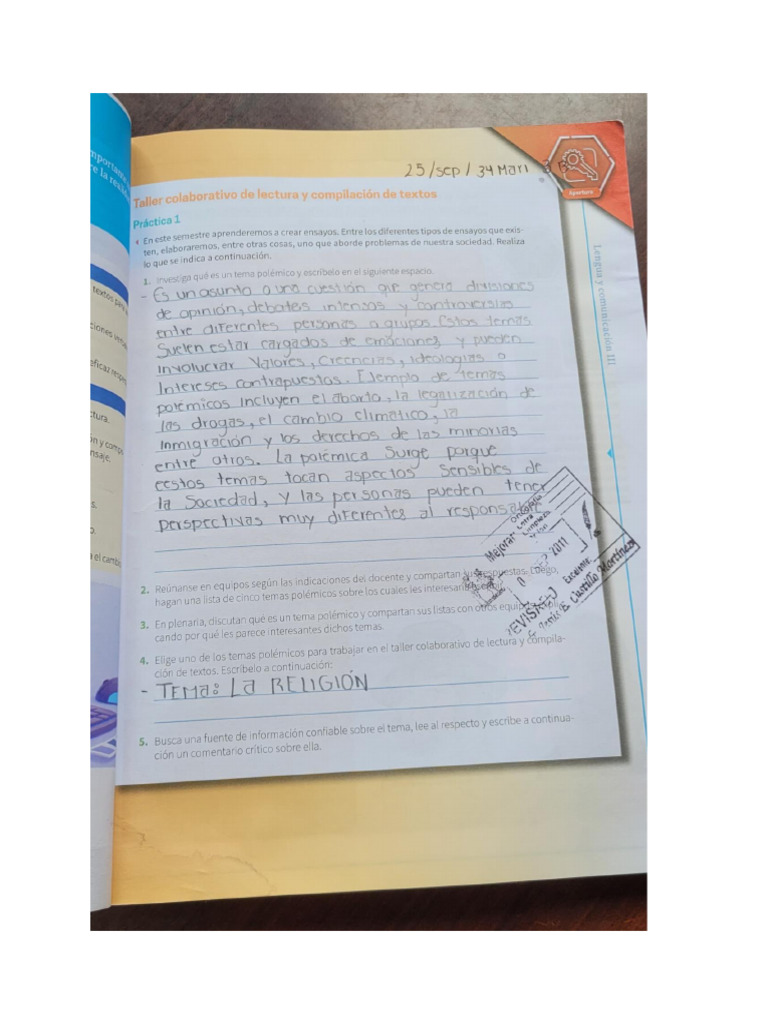 mportanta
re la realid
25/sep/34 Mari
Apertura
Taller colaborativo de lectura y compilación de textos
Práctica 1
En este semestre aprenderemos a crear ensayos. Entre los diferentes tipos de ensayos que exis-
ten, elaboraremos, entre otras cosas, uno que aborde problemas de nuestra sociedad. Realiza
lo que se indica a continuación.
1. Investiga qué es un tema polémico y escríbelo en el siguiente espacio.
- Es un asunto o una cuestión que genera divisiones
de opinión, debates intensos y controversias
entre diferentes personas o grupos. Estos temas
suelen estar cargados de emociones y pueden
involucrar valores, creencias, ideologías o
intereses contrapuestos. Ejemplo de temas
polémicos incluyen el aborto, la legalización de
las drogas, el cambio climatico, la
inmigración y los derechos de las minorias
entre otros. La polémica surge porque
eestos temas tocan aspectos sensibles de
la sociedad, y las personas pueden tener
perspectivas muy diferentes al
2. Reúnanse en equipos según las indicaciones del docente y compartan sus respuestas. Luego,
hagan una lista de cinco temas polémicos sobre los cuales les
3. En plenaria, discutan qué es un tema polémico y compartan sus listas con otros
cando por qué les parece interesantes dichos temas.
4. Elige uno de los temas polémicos para trabajar en el taller colaborativo de lectura y compila-
ción de textos. Escríbelo a continuación:
- TEMA: LA RELIGIÓN
5. Busca una fuente de información confiable sobre el tema, lee al respecto y escribe a continua-
ción un comentario crítico sobre ella.
Lengua y comunicación III
Mejorar
Ortografía
Letra
Limpieza
2011
REVISADO
Excelente
Castillo Martínez
textos para
ciones
eficaz
ctura.
ón y
nsaje.
s.
o.
a el cambi